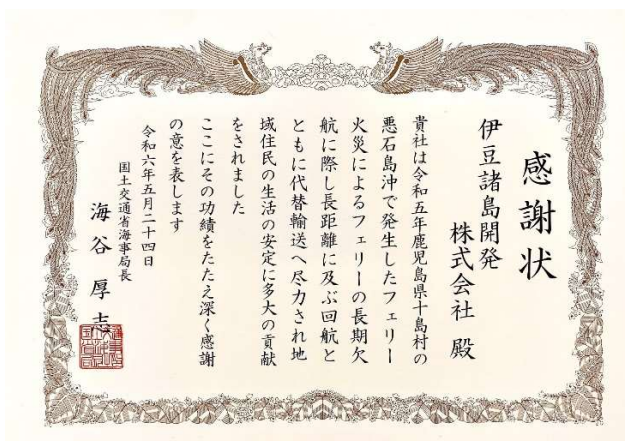 感謝状
伊豆諸島開発
株式会社 殿
貴社は令和五年鹿児島県十島村の
悪石島沖で発生したフェリー
火災によるフェリーの長期欠
航に際し長距離に及ぶ回航と
ともに代替輸送へ尽力され地
域住民の生活の安定に多大の貢献
をされました
ここにその功績をたたえ深く感謝
の意を表します
令和六年五月二十四日
国土交通省海事局長
海谷厚志